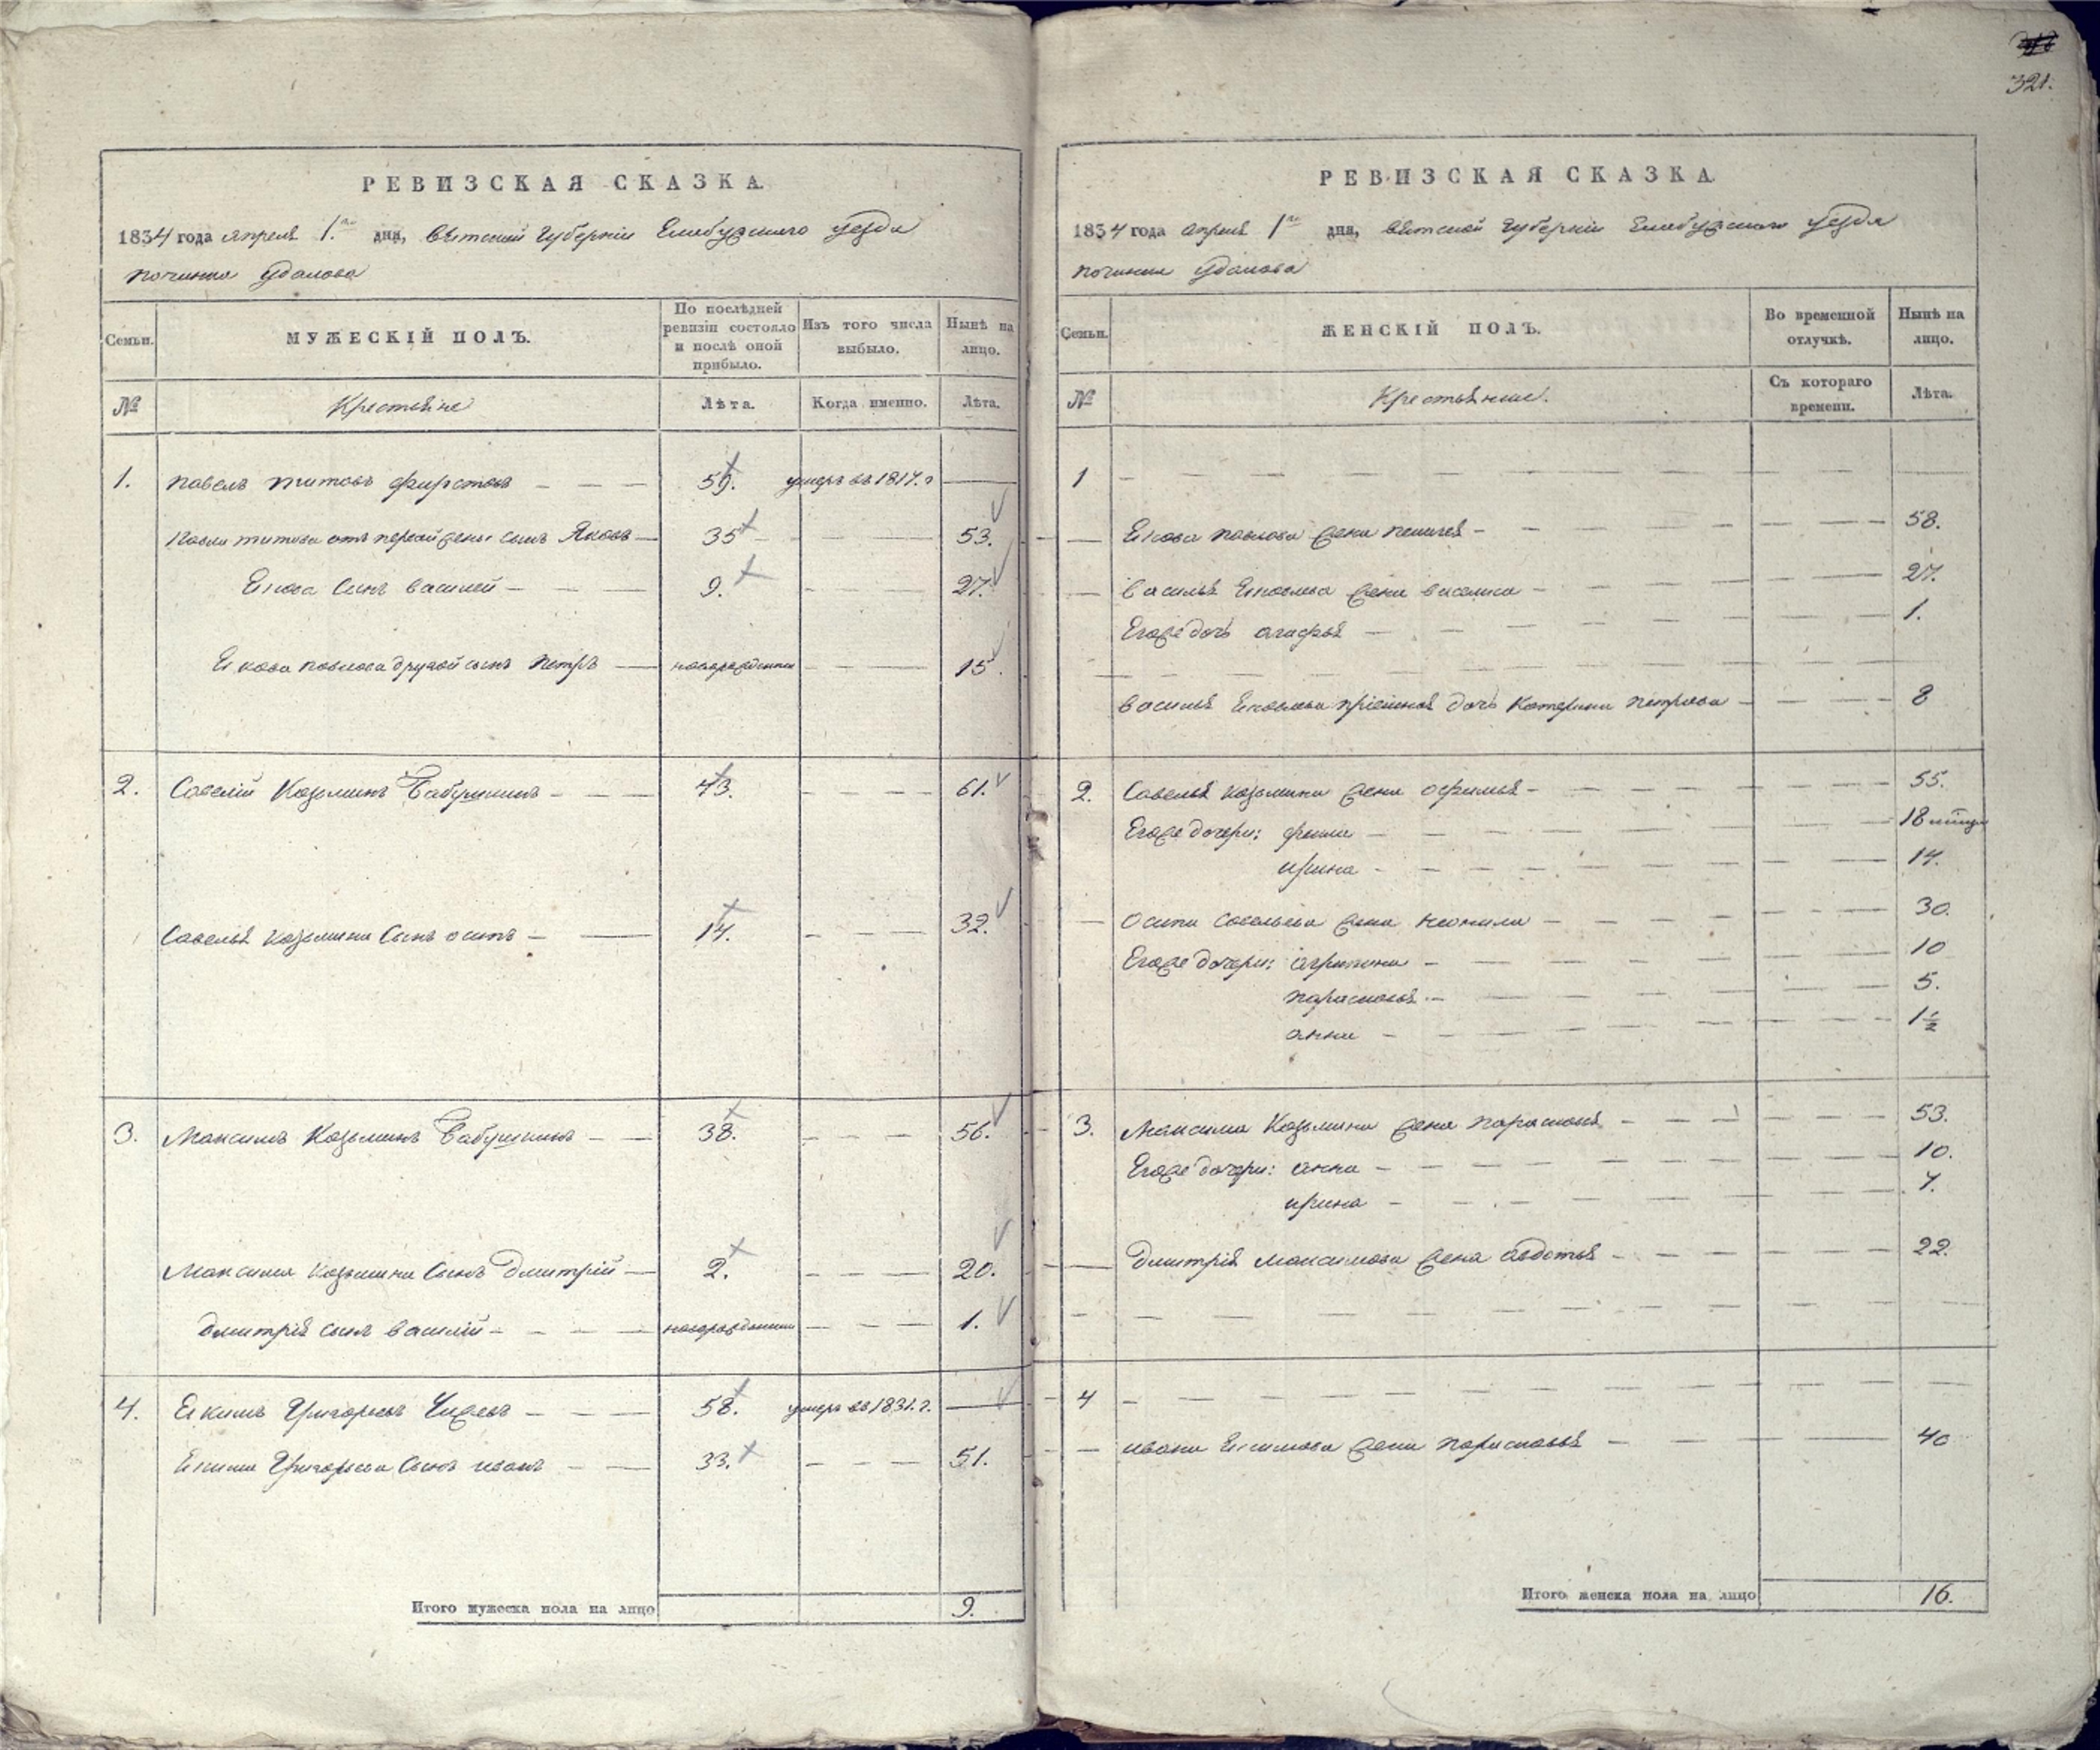 321.
РЕВИЗСКАЯ СКАЗКА.
1834 года апреля 1.го дня, Вятской Губернии Елабужского уезда
починка Удалова
Семьи. МУЖЕСКІЙ ПОЛЪ. По послѣдней ревизіи состояло и послѣ оной прибыло. Изъ того числа выбыло. Нынѣ на лицо.
№ Крестьяне Лѣта. Когда именно. Лѣта.
1. Павелъ Титовъ 59. умеръ въ 1817. г
Павла Титова отъ первой жены сынъ Яковъ 35 53.
Якова сынъ Василей 9. 27.
Якова Павлова другой сынъ Петръ новорожденны 15.
2. Савелій Козьминъ Бабушкинъ 43. 61.
Савелья Козьмина сынъ Осипъ 14. 32.
3. Максимъ Козьминъ Бабушкинъ 38. 56.
Максима Козьмина сынъ Дмитрій 2. 20.
Дмитрія сынъ Василій новорожденны 1.
4. Якимъ Григорьевъ 58. умеръ въ 1831. г.
Якима Григорьева сынъ Иванъ 33. 51.
Итого мужеска пола на лицо 9.
РЕВИЗСКАЯ СКАЗКА.
1834 года апреля 1го дня, Вятской Губернии Елабужского уезда
починка Удалова
Семьи. ЖЕНСКІЙ ПОЛЪ. Во временной отлучкѣ. Нынѣ на лицо.
№ Крестьянки. Съ котораго времени. Лѣта.
1
Якова Павлова жена 58.
Василья Яковлева жена Василиса 27.
Его же дочь Агафья 1.
Василья Яковлева приемная дочь Катерина Петрова 8
2. Савелья Козьмина жена Офимья 55.
Его же дочери: 18
Ирина 14.
Осипа Савельева жена Неонила 30.
Его же дочери: Агрипина 10
Парасковья 5.
Анна 1½
3. Максима Козьмина жена Парасковья 53.
Его же дочери: Анна 10.
Ирина 7.
Дмитрія Максимова жена Авдотья 22.
4
Ивана Якимова жена Парасковья 40
Итого женска пола на лицо 16.